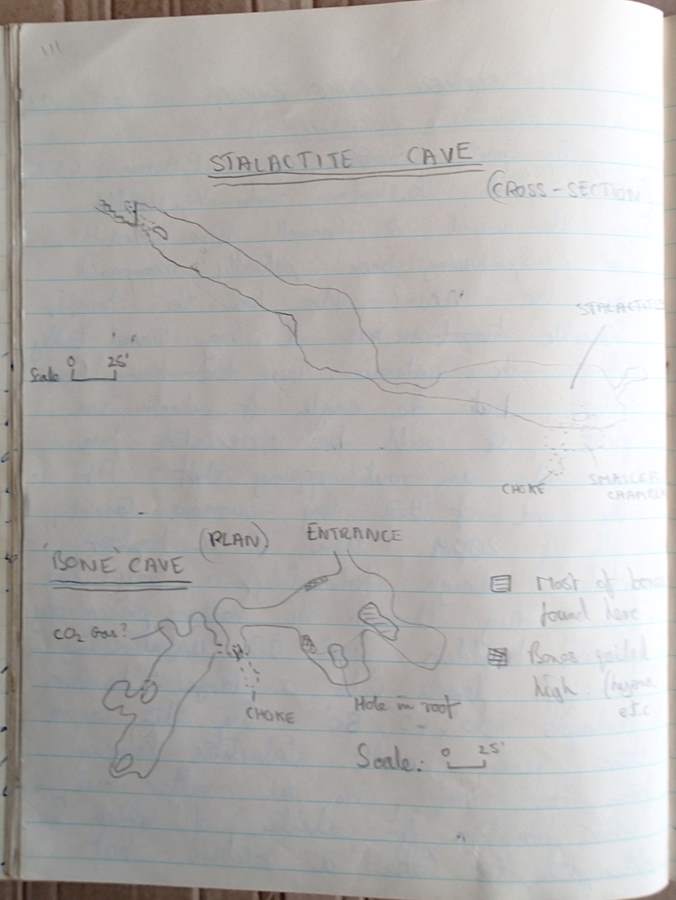 111
STALACTITE CAVE
(CROSS-SECTION)
STALACTITE
0 25'
Scale
CHOKE
SMALLER
CHAMBER
'BONE' CAVE
(PLAN)
ENTRANCE
CO2 Gas?
CHOKE
Hole in roof
Most of bones
found here
Bones piled
high (hyena
etc
Scale: 0 25'